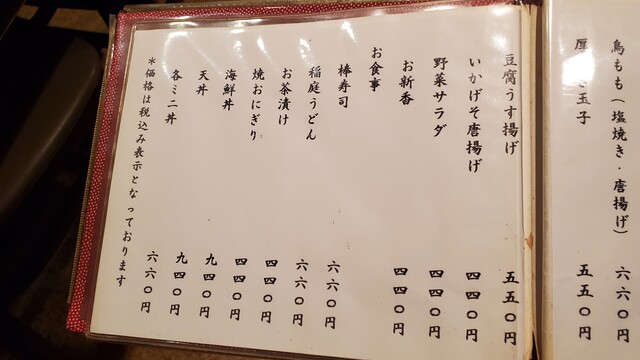 鳥もも(塩焼き・唐揚げ) 六六〇円
玉子 五五〇円
豆腐うす揚げ 五五〇円
いかげそ唐揚げ 四四〇円
野菜サラダ 四四〇円
お新香 四四〇円
お食事
棒寿司 六六〇円
稲庭うどん 六六〇円
お茶漬け 四四〇円
焼おにぎり 四四〇円
海鮮丼 九四〇円
天丼 九四〇円
各ミニ丼 六六〇円
*価格は税込み表示となっております